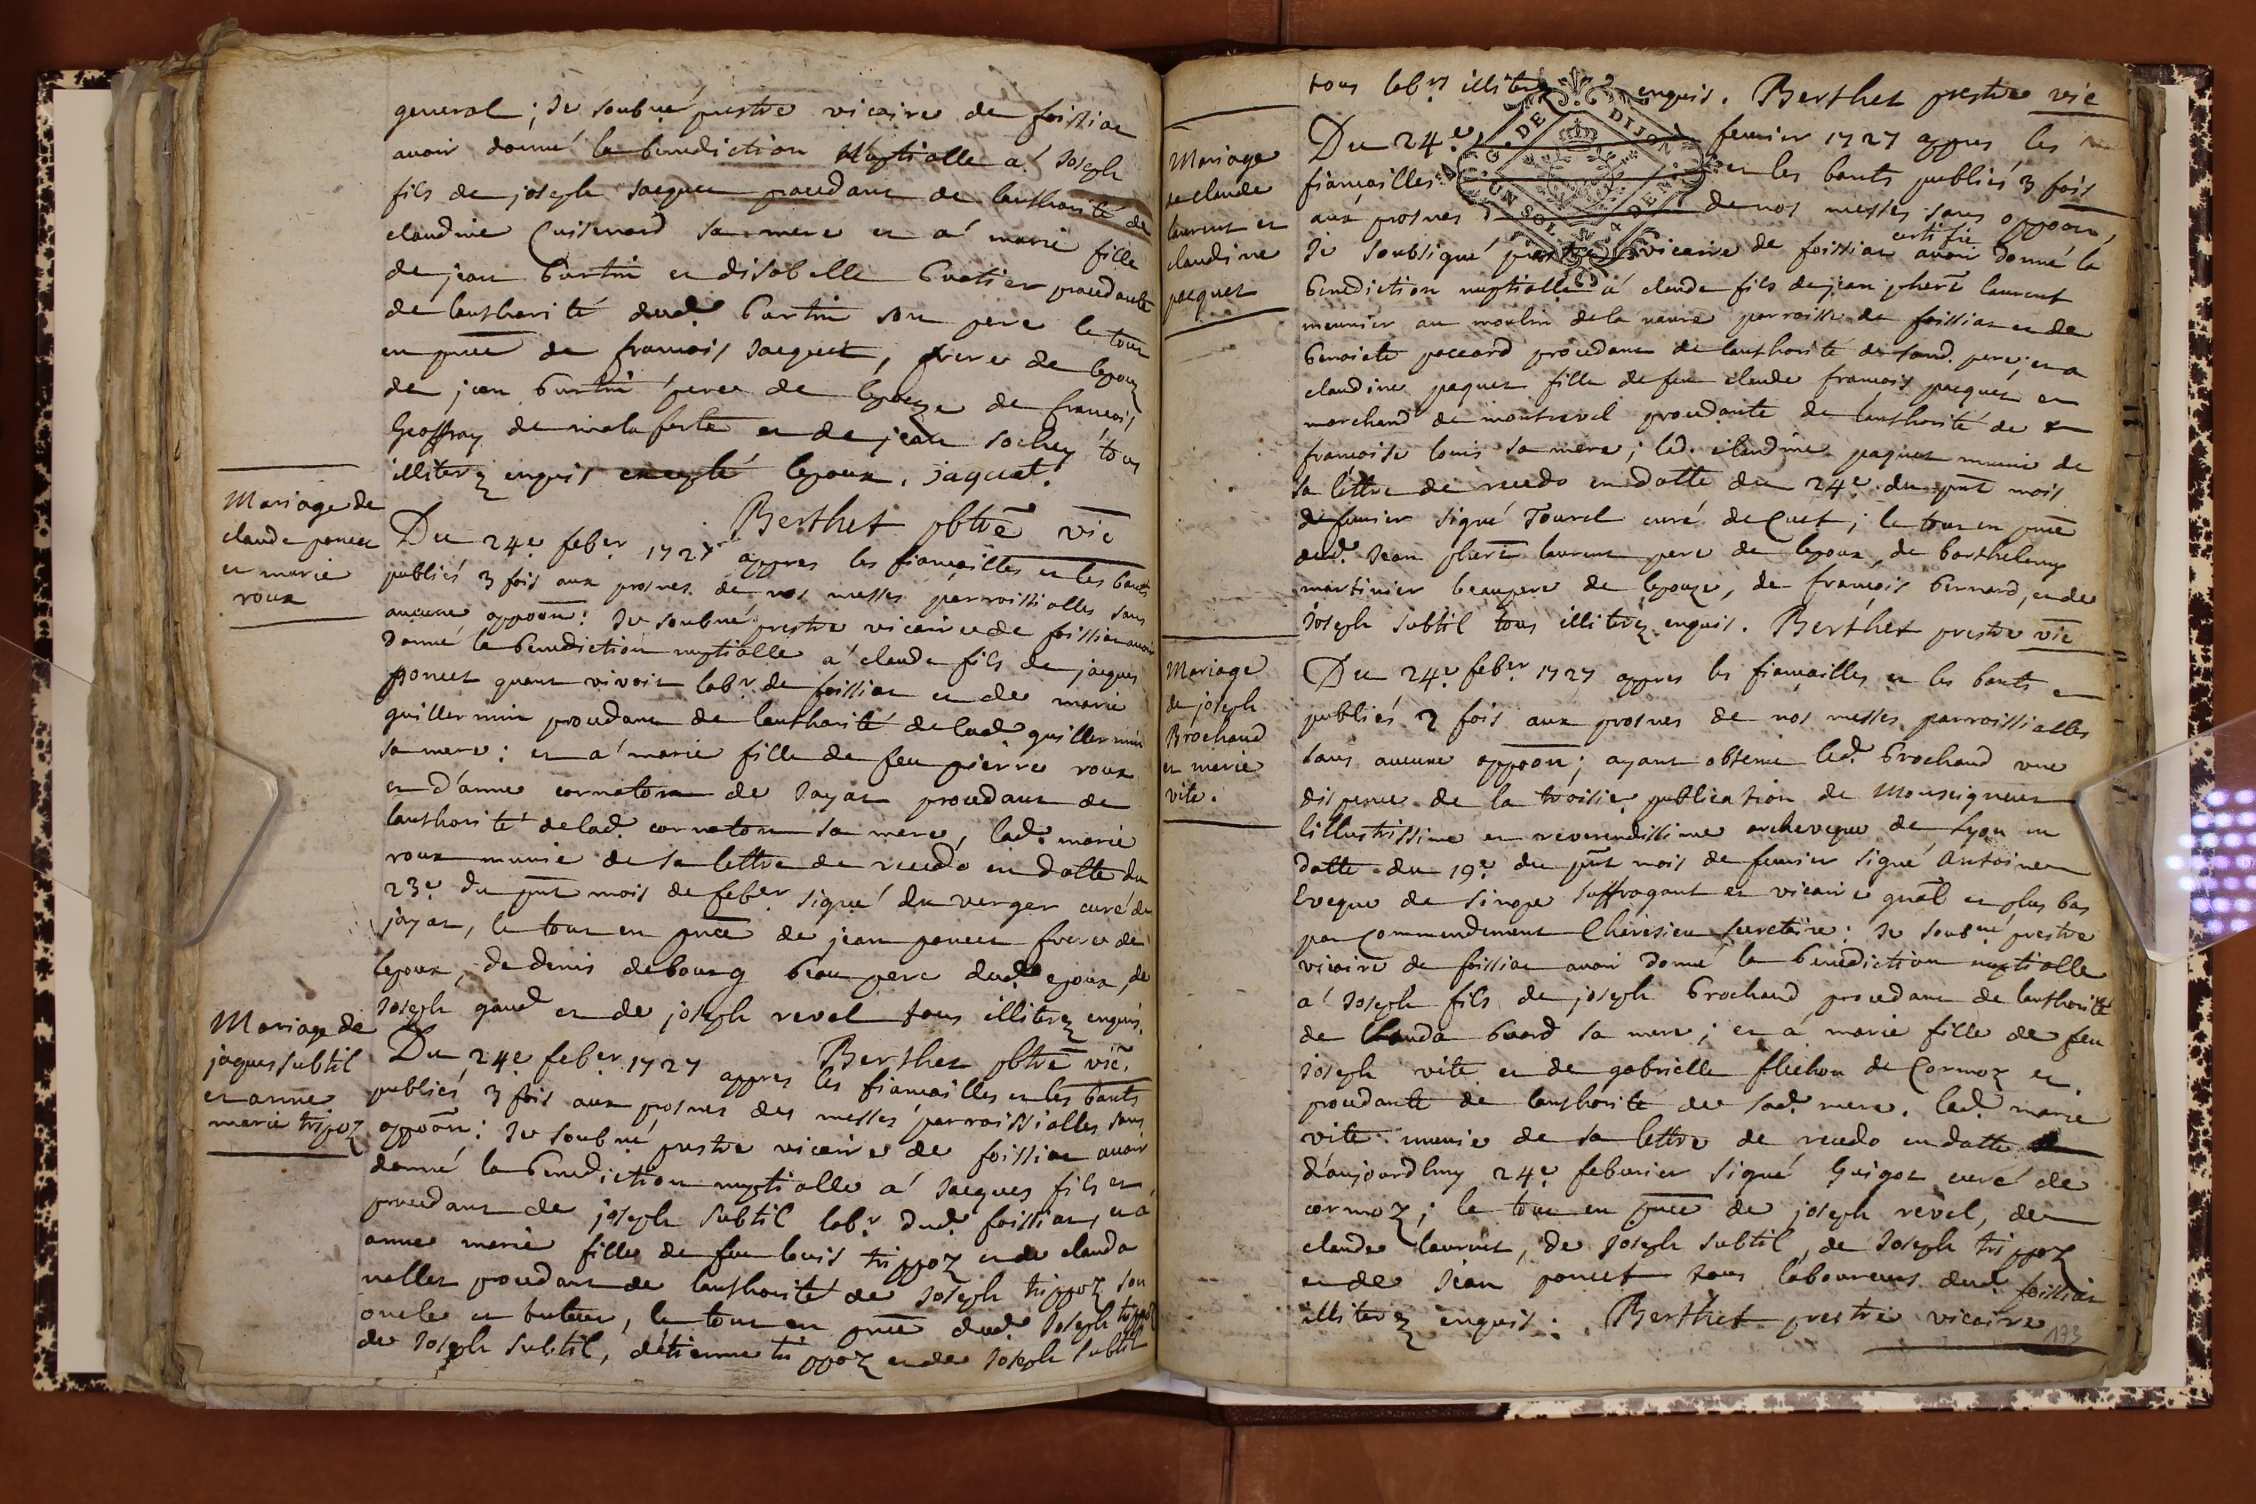 general ; Je soubné prestre vicaire de foissiac
avoir donné la benediction Nuptialle a Joseph
fils de joseph Jacquer procedant de lauthorité de
claudine Cuisenard sa mere et a marie fille
de jean burtin et disabelle buatier procedante
de lauthorité dud. burtin son pere le tout
en pnce de francois Jacquet, frere de lepoux
de jean burtin pere de lepouze de francois
Geoffray de malaferta et de jean sochey tous
illiterez enquis excepté lepoux. jaquat.
Berthet pbtre vic
Mariage de
claude poncet
et marie
roux
Du 24e feber 1727 appres les fiancailles et les bants
publiés 3 fois aux prosnes de nos messes parroissialles sans
aucune oppoon: Je soubné prestre vicaire de foissiac avoir
donné la benediction nuptialle a claude fils de jaques
poncet quant vivoit labr. de foissiat et de marie
guillermin procedant de lauthorité de lad guillermin
sa mere : et a marie fille de feu pierre roux
et d'anne cornaton de Jayat procedant de
lauthorité de lad. cornaton sa mere, lad. marie
roux munie de sa lettre de recedo en datte du
23e du pnt mois de feber signé du verger curé de
jayat, le tout en pnce de jean poncet frere de
lepoux, de denis debourg beau pere dud. epoux, de
Joseph gaud et de joseph revel tous illiterez enquis.
Berthet pbtre vic.
Mariage de
jaques subtil
et anne
marie tripoz
Du 24e feber 1727 appres les fiancailles et les bants
publiés 3 fois aux prosnes des messes parroissialles sans
oppoon : Je soubné prestre vicaire de foissiac avoir
donné la benediction nuptialle a Jacques fils et
procedant de joseph subtil labr. dud. foissiat, et a
anne marie fille de feu louis trippoz et de clauda
nallet procedant de lauthorité de Joseph trippoz son
oncle et tuteur, le tout en pnce dud. Joseph trippoz
de Joseph subtil, détienne trippoz et de Joseph subtil
tous labrs illiterez enquis. Berthet prestre vic
Mariage
de claude
laurent et
claudine
paquet
Du 24e fevrier 1727 appres les
fiancailles et les bants publiés 3 fois
aux prosnes de nos messes sans oppoon,
Je soubsigné prestre vicaire de foissiat certifie avoir donné la
benediction nuptialle a claude fils de jean phert laurent
meunier au moulin de la vavre parroisse de foissiat et de
benoiste paccard procedant de lauthorité de sond. pere; et a
claudine paquet fille de feu claude francois paquet
marchand de montrevel procedante de lauthorité de
francoise louis sa mere ; lad. claudine paquet munie de
sa lettre de recedo en datte du 24e du pnt mois
de fevrier signé Tourel curé de Cuet ; le tout en pnce
dud. Jean phert laurent pere de lepoux, de barthelemy
martinier beaupere de lepouze, de francois bernard, et de
Joseph subtil tous illiterez enquis. Berthet prestre vic
Mariage
de joseph
Brochand
et marie
vite.
Du 24e feber 1727 appres les fiancailles et les bants
publiés 2 fois aux prosnes de nos messes parroissialles
sans aucune oppoon ; ayant obtenu led. brochand une
dispence de la troisie publication de Monseigneur
lillustrissime et reverendissime archeveque de Lyon en
datte du 19e du pnt mois de fevrier signé Antoine
Eveque de sinope suffragant et vicaire gnal et plus bas
par commendement Cherisieu secretaire : Je soubné prestre
vicaire de foissiac avoir donné la benediction nuptialle
a Joseph fils de joseph brochand procedant de lauthorité
de Clauda buard sa mere ; et a marie fille de feu
Joseph vite et de gabrielle flechon de Cormoz et
procedante de lauthorité de sad. mere. lad. marie
vite munie de sa lettre de recedo en datte
d'aujourdhuy 24e feburier signé Guigot curé de
cormoz ; le tout en pnce de joseph revel, de
claude laurent, de Joseph subtil, de Joseph trippoz
et de Jean poncet tous laboureurs dud. foissiat
illiterez enquis. Berthet prestre vicaire
173